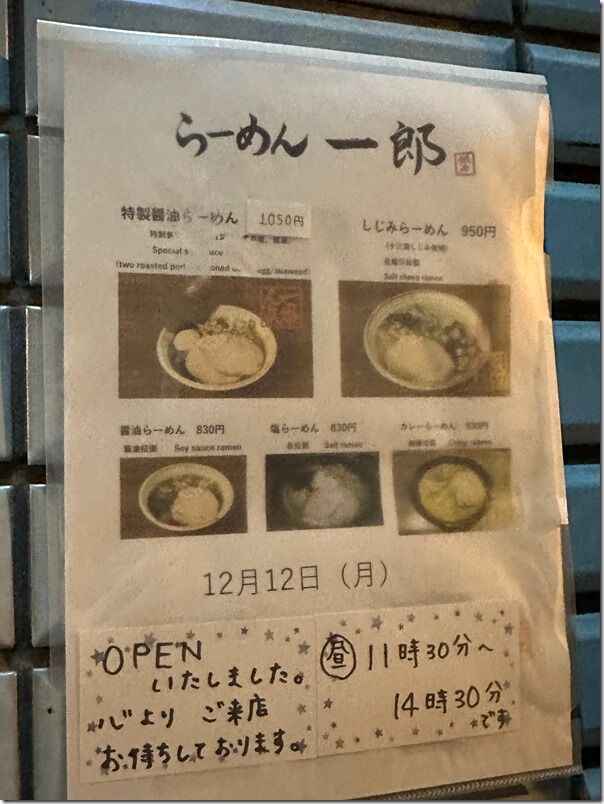 らーめん 一郎
特製醤油らーめん 1050円
Special
(two roasted
しじみらーめん 950円
Salt clams ramen
醤油らーめん 830円
醤油拉麺 Soy sauce ramen
塩らーめん 830円
塩拉麺 Salt ramen
カレーらーめん 930円
Curry ramen
12月12日（月）
OPEN
いたしました。
心より ご来店
お待ちしております。
昼 11時30分〜
14時30分
です